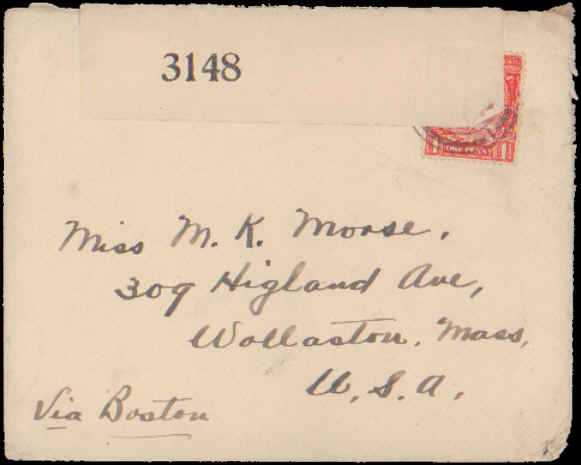 3148
Miss M. K. Morse,
309 Higland Ave,
Wollaston, Mass,
U. S. A.
Via Boston